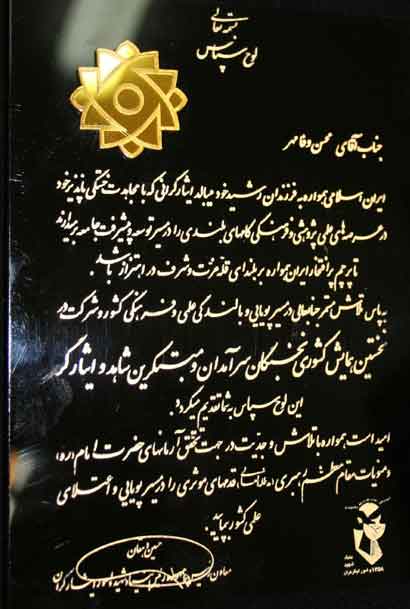 بسمه تعالی
لوح سپاس
جناب آقای محسن وفامهر
ایران اسلامی همواره به فرزندان رشید خود میبالد ایثارگرانی که با مجاهدت خستگی ناپذیر خود
در عرصه های علمی پژوهشی و فرهنگی گامهای بلندی را در مسیر توسعه و پیشرفت جامعه برمیدارند
تا پرچم پر افتخار ایران همواره بر بلندای قله عزت و شرف در اهتزاز باشد.
به پاس تلاش مستمر جنابعالی در مسیر پویایی و بالندگی علمی و فرهنگی کشور و شرکت در
نخستین همایش کشوری نخبگان سرآمدان و مبتکرین شاهد و ایثارگر
این لوح سپاس به شما تقدیم میگردد.
امید است همواره با تلاش و جدیت در جهت تحقق آرمانهای حضرت امام (ره)
و منویات مقام معظم رهبری (مدظله العالی) قدمهای موثری را در مسیر پویایی و اعتلای
علمی کشور بپیمایید.
حسین دهقان
معاون رئیس جمهور و رئیس بنیاد شهید و امور ایثارگران
بنیاد
شهید